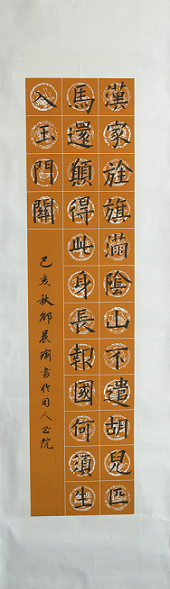 漢家旌旗滿陰山不遣胡兒匹
馬還願得此身長報國何須生
入玉門關
己亥秋 書於